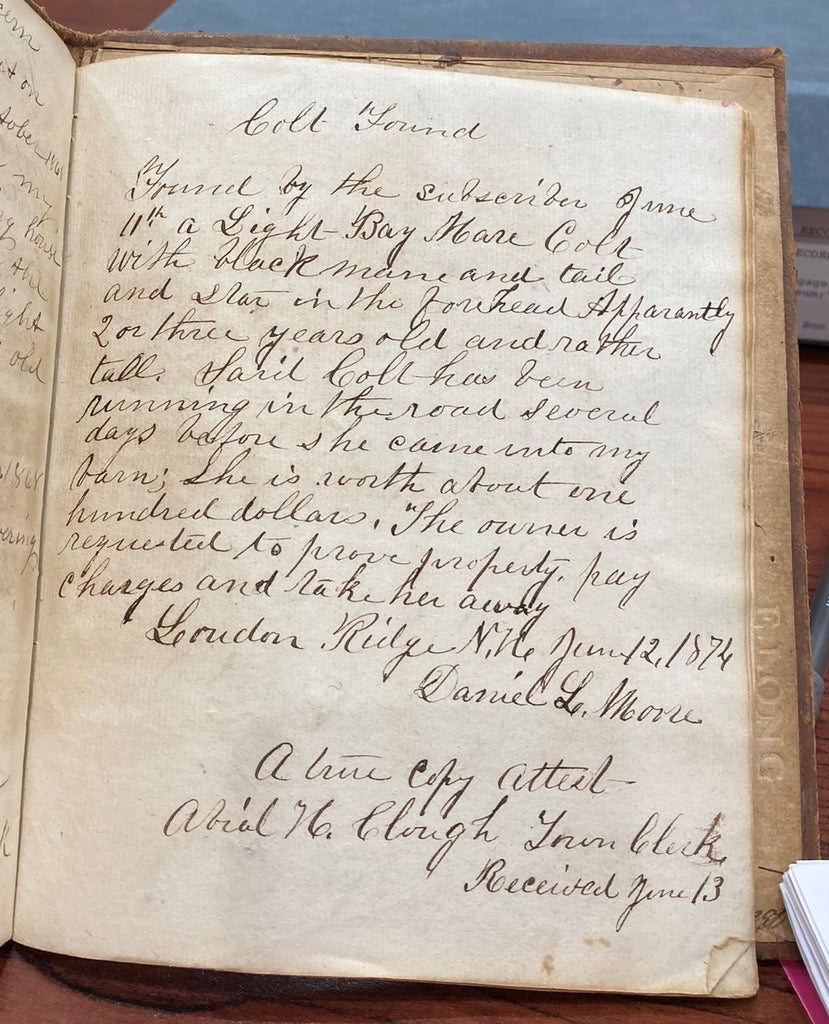 Colt Found
Found by the subscriber June
11th a Light Bay Mare Colt
with black mane and tail
and star in the forehead Apparantly
2 or three years old and rather
tall. Said Colt has been
running in the road several
days before she came into my
barn; she is worth about one
hundred dollars. The owner is
requested to prove property, pay
charges and take her away
Loudon Ridge N.H. June 12, 1874
Daniel L. Moore
A true copy attest
Abial H. Clough Town Clerk
Received June 13
t on
my
house
the
ight
old
1868
RECORD